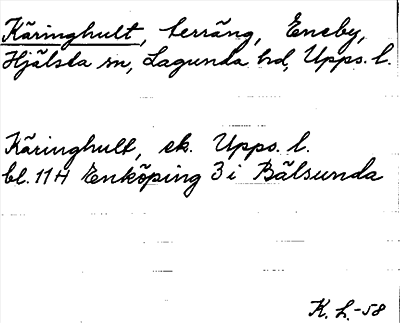 Käringhult, terräng, Eneby,
Hjälsta sn, Lagunda hd, Upps. l.
Käringhult, ek. Upps. l.
bl. 11 H Enköping 3 i Bälsunda
K. L. -58